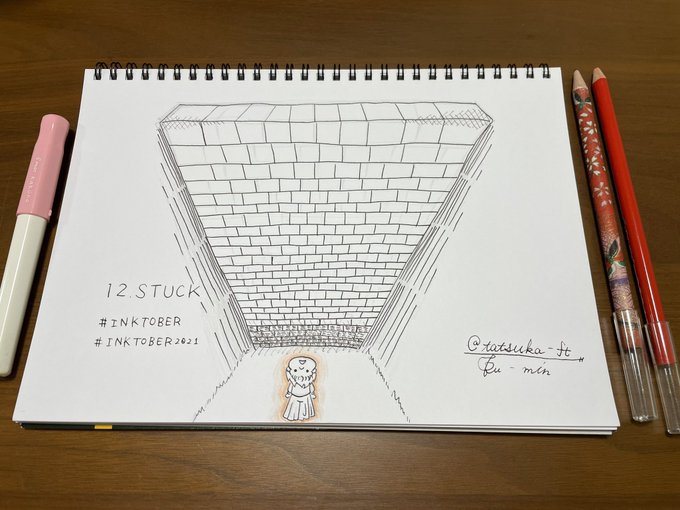 12. STUCK
#INKTOBER
#INKTOBER2021
@tatsuka-ft
fu-min